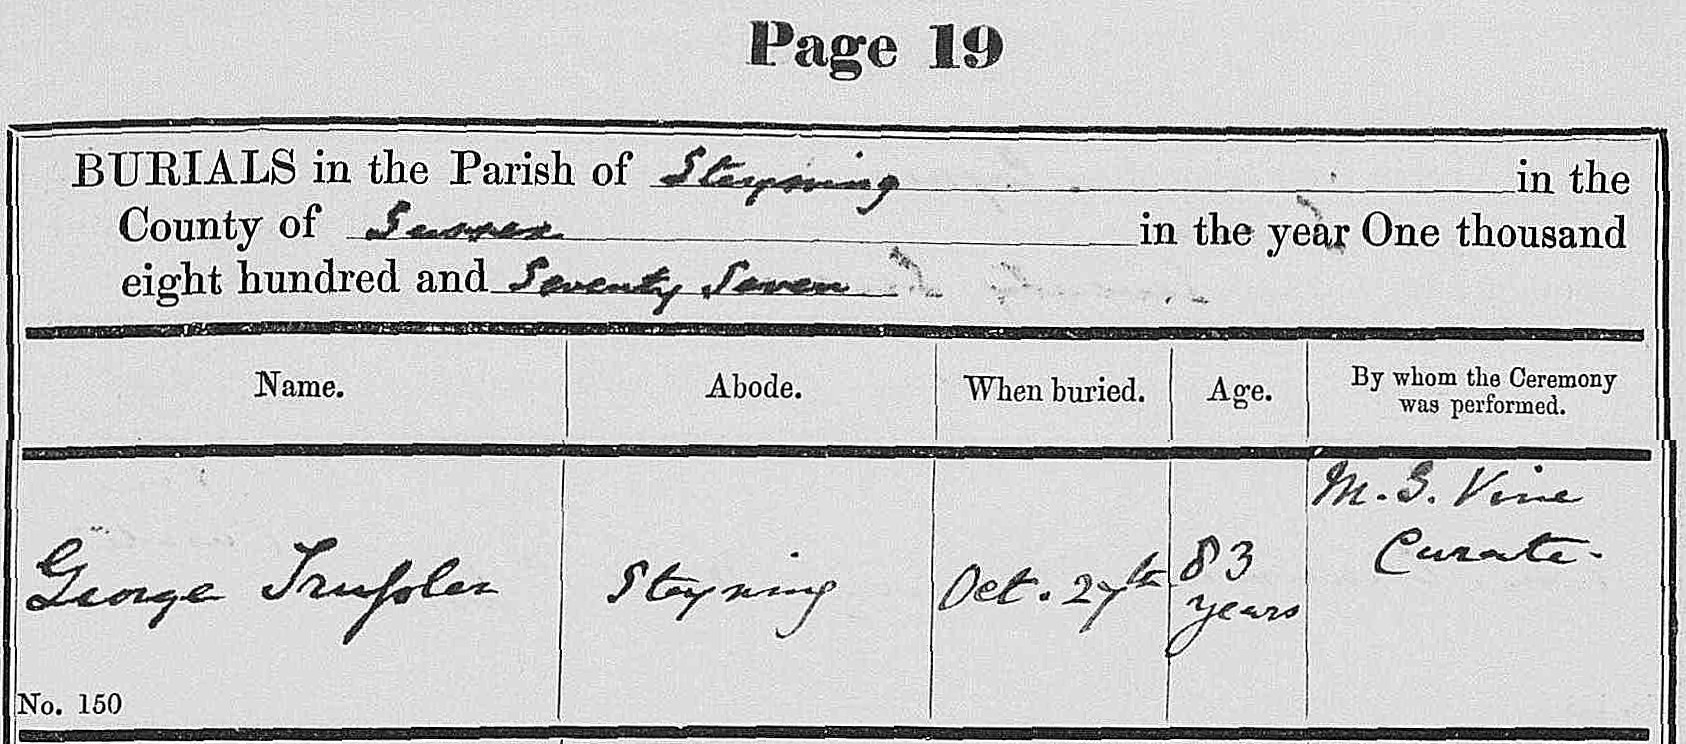 Page 19
BURIALS in the Parish of Steyning in the
County of Sussex in the year One thousand
eight hundred and Seventy Seven
Name. Abode. When buried. Age. By whom the Ceremony
was performed.
M. G. Vine
Curate.
George Truſsler Steyning Oct. 27th 83
years
No. 150